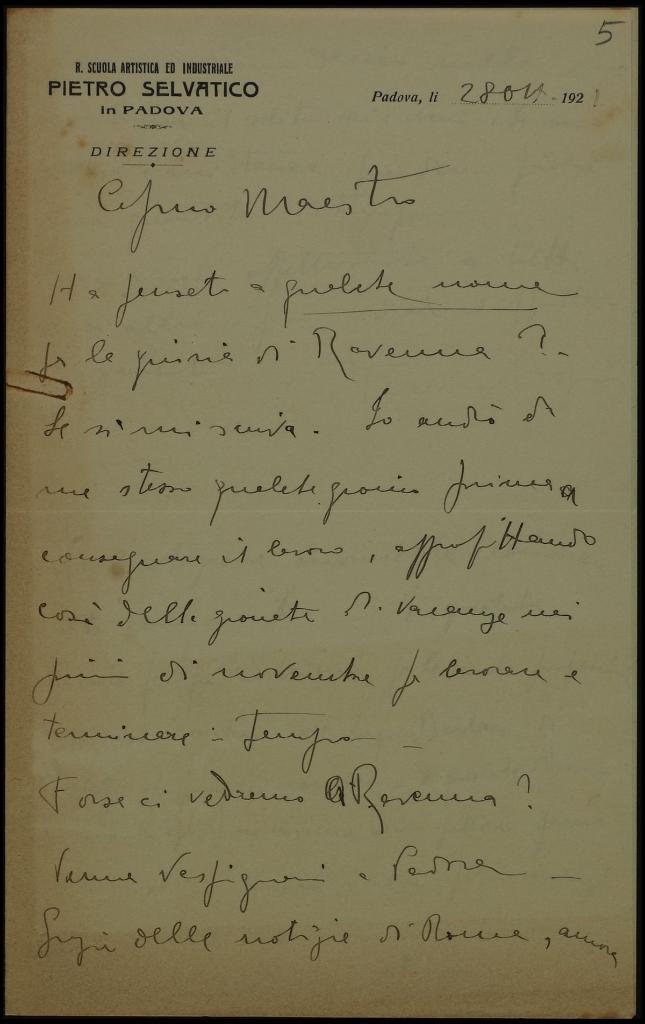 5
R. SCUOLA ARTISTICA ED INDUSTRIALE
PIETRO SELVATICO
in PADOVA
DIREZIONE
Padova, li 28 Ott. 1921
Maestro
Ha pensato a qualche nome
la giuria di Ravenna ?
Se sì mi scriva. Io andrò di
me stesso qualche giorno prima a
consegnare il lavoro, approfittando
così delle giornate di vacanze nei
primi di novembre lavorare e
terminare in tempo
Forse ci vedremo a Ravenna ?
Venne Vespignani a Padova
Grazie delle notizie di Roma, ancora